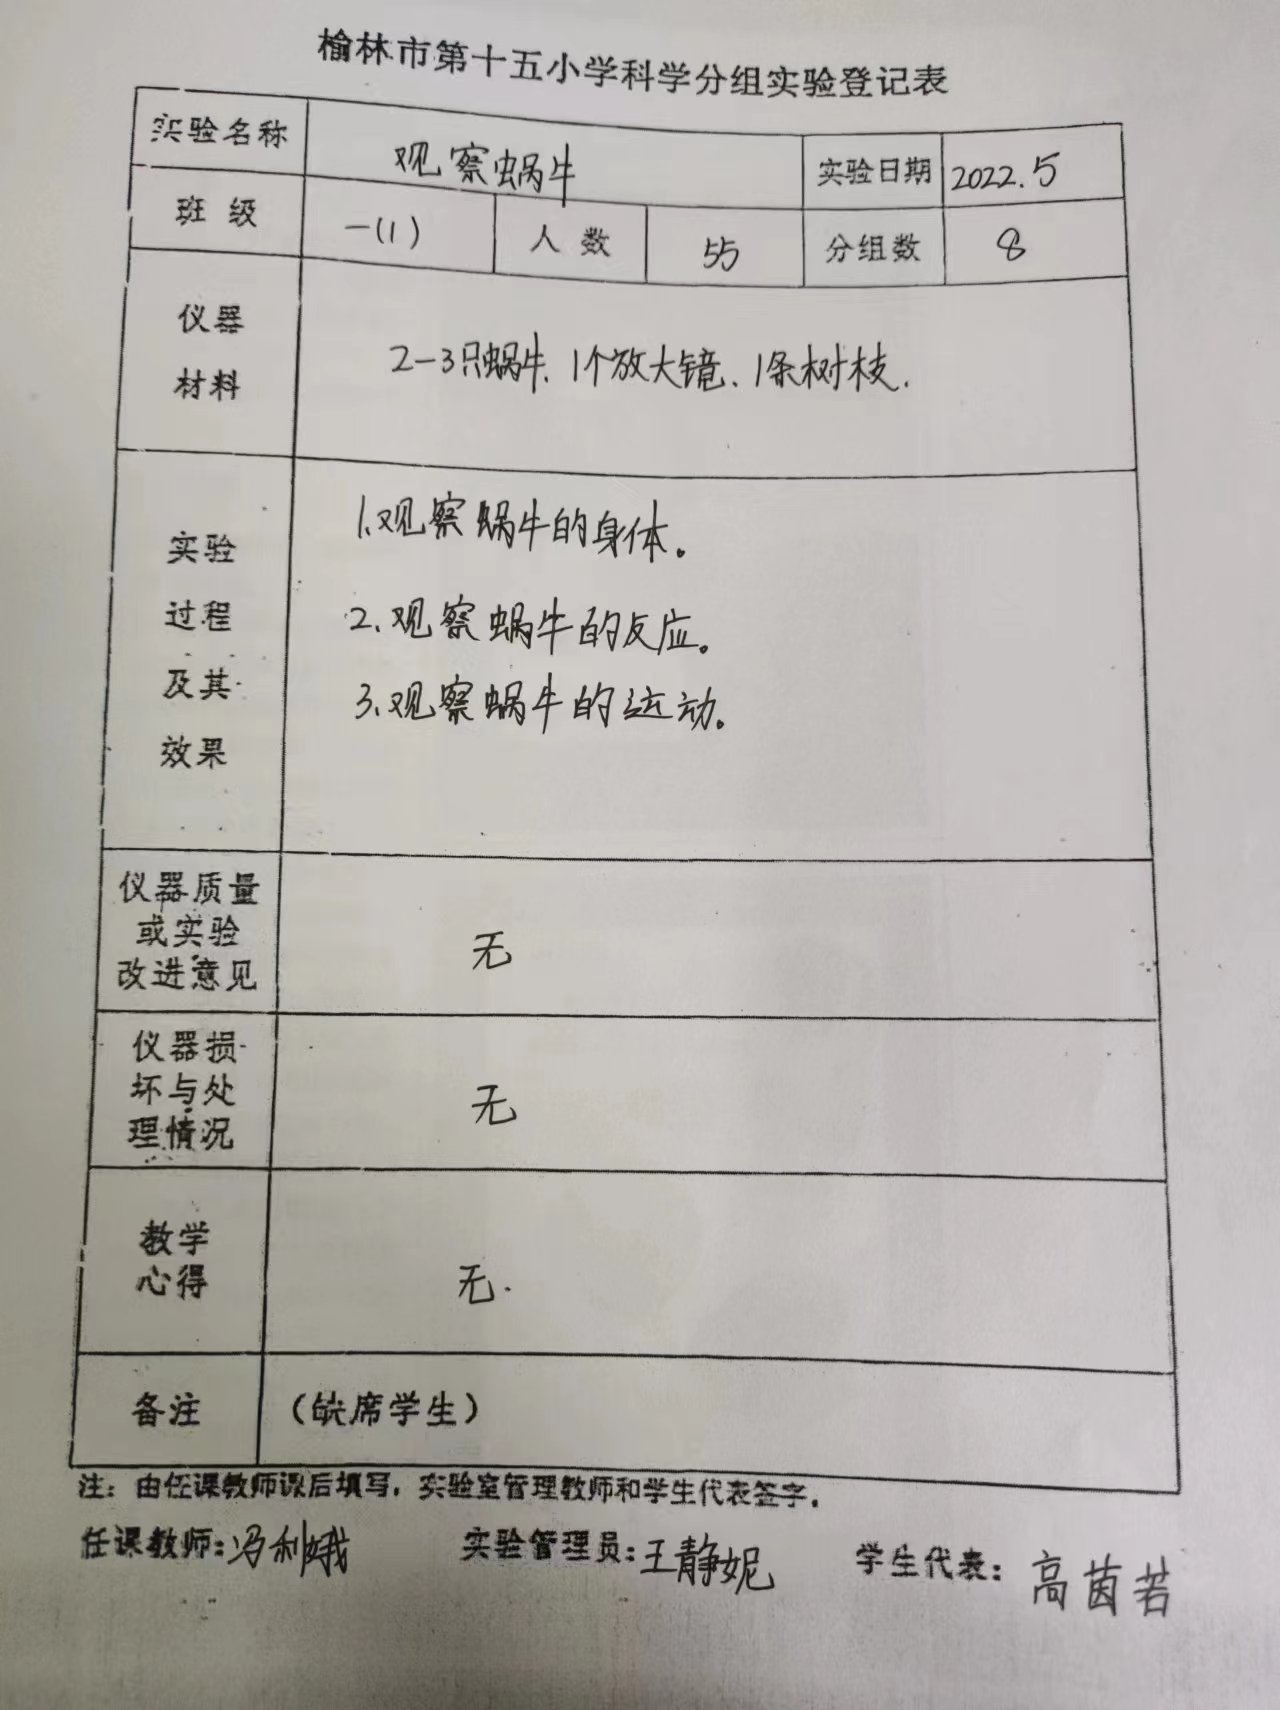 榆林市第十五小学科学分组实验登记表
实验名称 观察蜗牛 实验日期 2022.5
班级 一(1) 人数 55 分组数 8
仪器
材料
2-3只蜗牛、1个放大镜、1条树枝.
实验
过程
及其
效果
1.观察蜗牛的身体。
2.观察蜗牛的反应。
3.观察蜗牛的运动。
仪器质量
或实验
改进意见
无
仪器损
坏与处
理情况
无
教学
心得
无.
备注 (缺席学生)
注：由任课教师课后填写，实验室管理教师和学生代表签字。
任课教师:冯利娥 实验管理员:王静妮 学生代表:高茵若